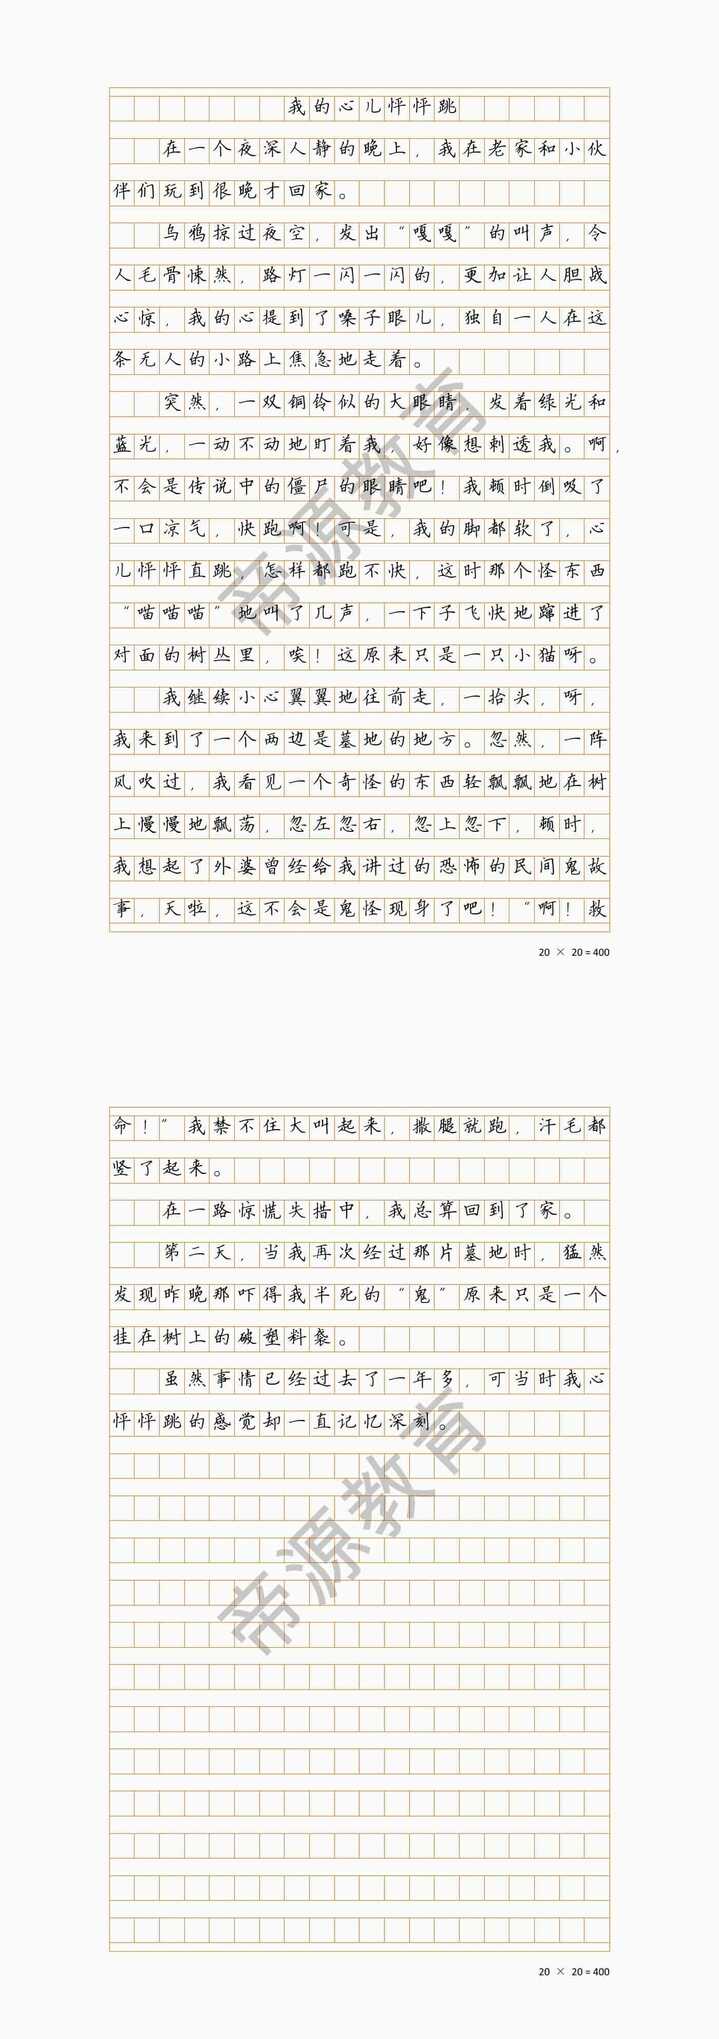 我的心儿怦怦跳
在一个夜深人静的晚上，我在老家和小伙
伴们玩到很晚才回家。
乌鸦掠过夜空，发出“嘎嘎”的叫声，令
人毛骨悚然，路灯一闪一闪的，更加让人胆战
心惊，我的心提到了嗓子眼儿，独自一人在这
条无人的小路上焦急地走着。
突然，一双铜铃似的大眼睛，发着绿光和
蓝光，一动不动地盯着我，好像想刺透我。啊，
不会是传说中的僵尸的眼睛吧！我顿时倒吸了
一口凉气，快跑啊！可是，我的脚都软了，心
儿怦怦直跳，怎样都跑不快，这时那个怪东西
“喵喵喵”地叫了几声，一下子飞快地蹿进了
对面的树丛里，唉！这原来只是一只小猫呀。
我继续小心翼翼地往前走，一抬头，呀，
我来到了一个两边是墓地的地方。忽然，一阵
风吹过，我看见一个奇怪的东西轻飘飘地在树
上慢慢地飘荡，忽左忽右，忽上忽下，顿时，
我想起了外婆曾经给我讲过的恐怖的民间鬼故
事，天啦，这不会是鬼怪现身了吧！“啊！救
20 × 20 = 400
命！”我禁不住大叫起来，撒腿就跑，汗毛都
竖了起来。
在一路惊慌失措中，我总算回到了家。
第二天，当我再次经过那片墓地时，猛然
发现昨晚那吓得我半死的“鬼”原来只是一个
挂在树上的破塑料袋。
虽然事情已经过去了一年多，可当时我心
怦怦跳的感觉却一直记忆深刻。
20 × 20 = 400
帝源教育
帝源教育